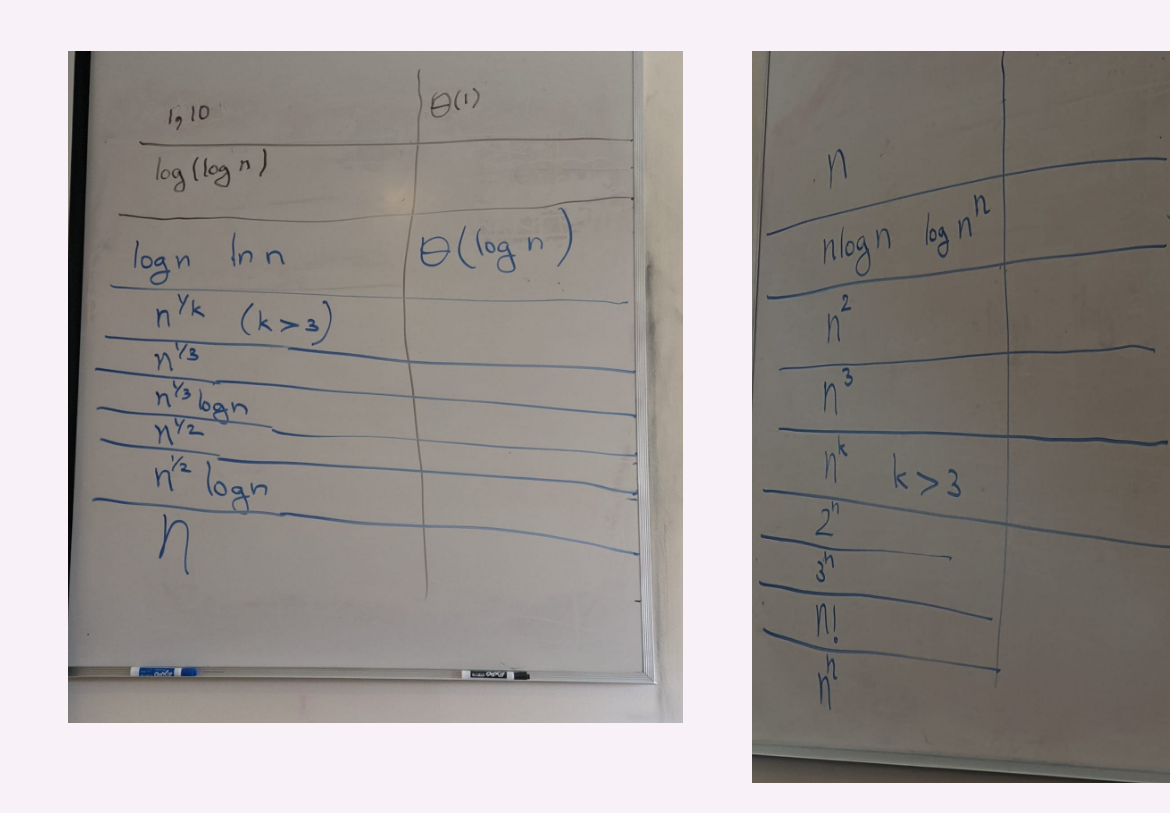 1, 10 Θ(1)
log(log n)
log n ln n Θ(log n)
n^1/k (k > 3)
n^1/3
n^1/3 log n
n^1/2
n^1/2 log n
n
n
n log n log n^n
n^2
n^3
n^k k > 3
2^n
3^n
n!
n^n